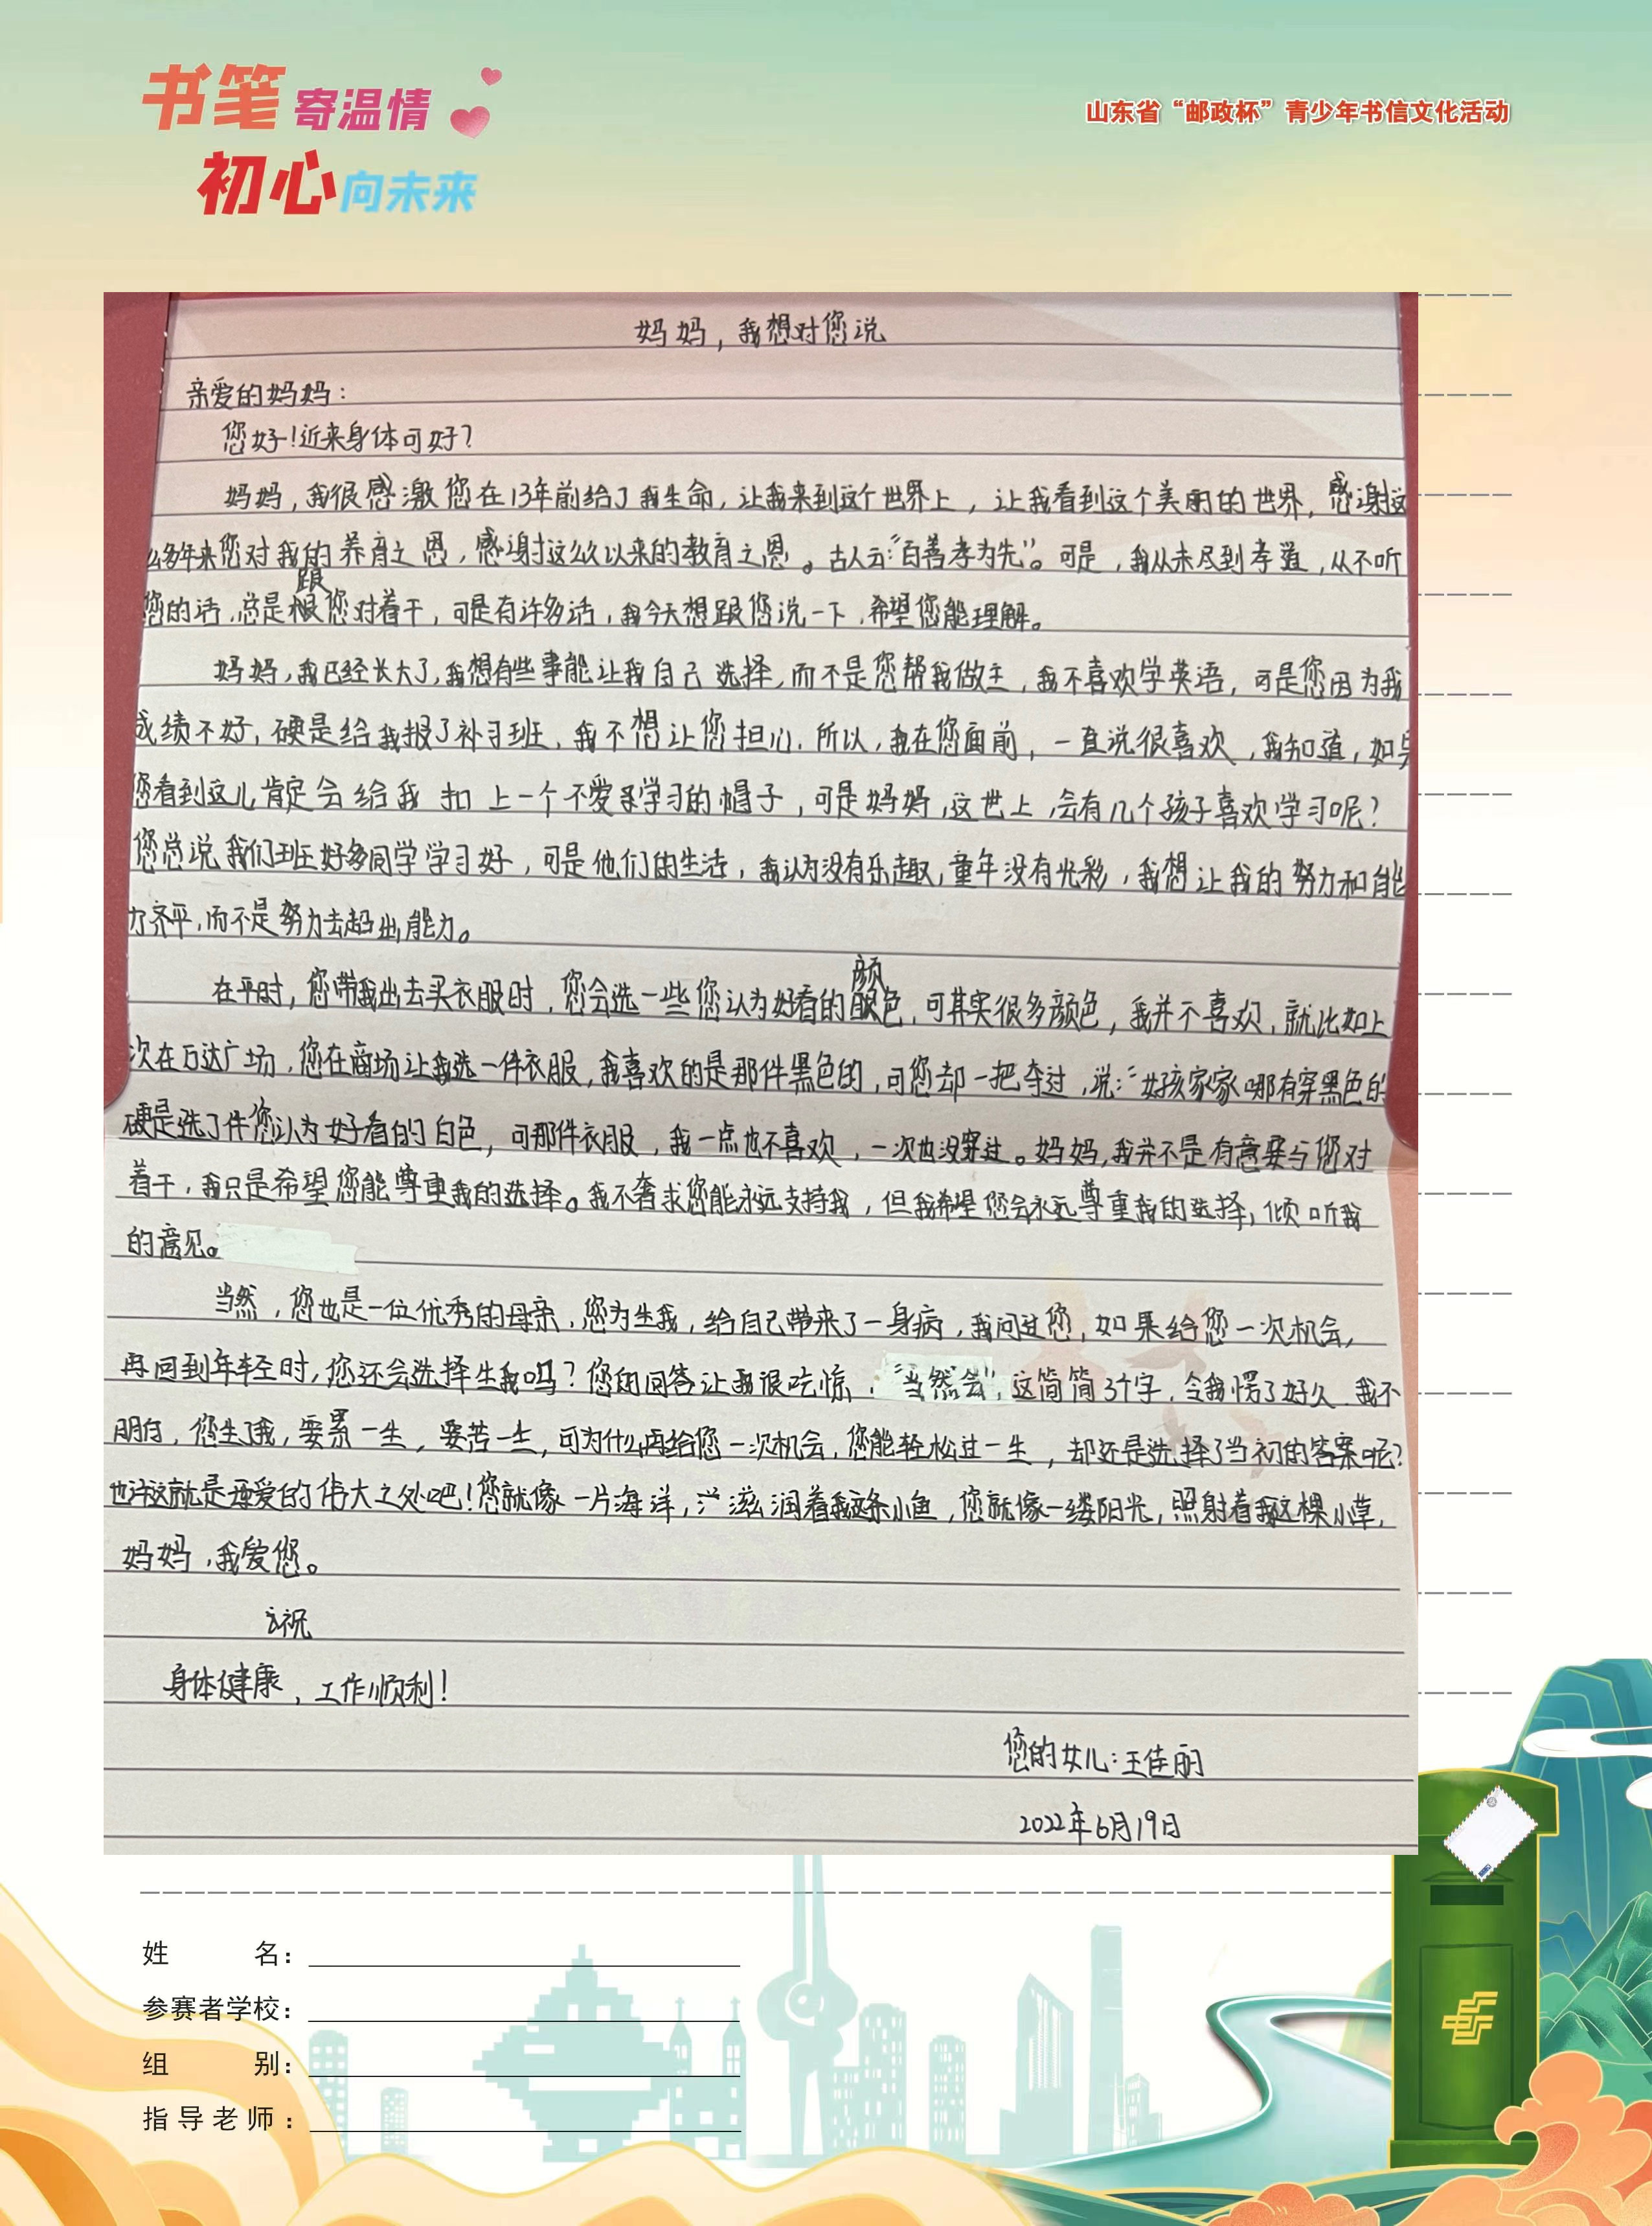 书笔寄温情
初心向未来
山东省“邮政杯”青少年书信文化活动
妈妈，我想对您说
亲爱的妈妈：
您好！近来身体可好？
妈妈，我很感激您在13年前给了我生命，让我来到这个世界上，让我看到这个美丽的世界，感谢这
么多年来您对我的养育之恩，感谢这么久以来的教育之恩。古人云：“百善孝为先”。可是，我从未尽到孝道，从不听
跟
您的话，总是根您对着干，可是有许多话，我今天想跟您说一下，希望您能理解。
妈妈，我已经长大了，我想有些事能让我自己选择，而不是您帮我做主，我不喜欢学英语，可是您因为我
成绩不好，硬是给我报了补习班，我不想让您担心，所以，我在您面前，一直说很喜欢，我知道，如果
您看到这儿肯定会给我扣上一个不爱学习的帽子，可是妈妈，这世上，会有几个孩子喜欢学习呢？
您总说我们班好多同学学习好，可是他们的生活，我认为没有乐趣，童年没有光彩，我想让我的努力和能
力齐平，而不是努力去超出能力。
颜
在平时，您带我出去买衣服时，您会选一些您认为好看的眼色，可其实很多颜色，我并不喜欢，就比如上
次在万达广场，您在商场让我选一件衣服，我喜欢的是那件黑色的，可您却一把夺过，说：“女孩家家哪有穿黑色的
硬是选了件您认为好看的白色，可那件衣服，我一点也不喜欢，一次也没穿过。妈妈，我并不是有意要与您对
着干，我只是希望您能尊重我的选择。我不奢求您能永远支持我，但我希望您会永远尊重我的选择，倾听我
的意见。
当然，您也是一位优秀的母亲，您为生我，给自己带来了一身病，我问过您，如果给您一次机会，
再回到年轻时，您还会选择生我吗？您的回答让我很吃惊，“当然会”，这简简3个字，令我愣了好久，我不
明白，您生了我，要累一生，要苦一生，可为什么再给您一次机会，您能轻松过一生，却还是选择了当初的答案呢？
也许这就是母爱的伟大之处吧！您就像一片海洋，滋润着我这条小鱼，您就像一缕阳光，照射着我这棵小草，
妈妈，我爱您。
祝
身体健康，工作顺利！
您的女儿：王佳丽
2022年6月19日
姓名：
参赛者学校：
组别：
指导老师：